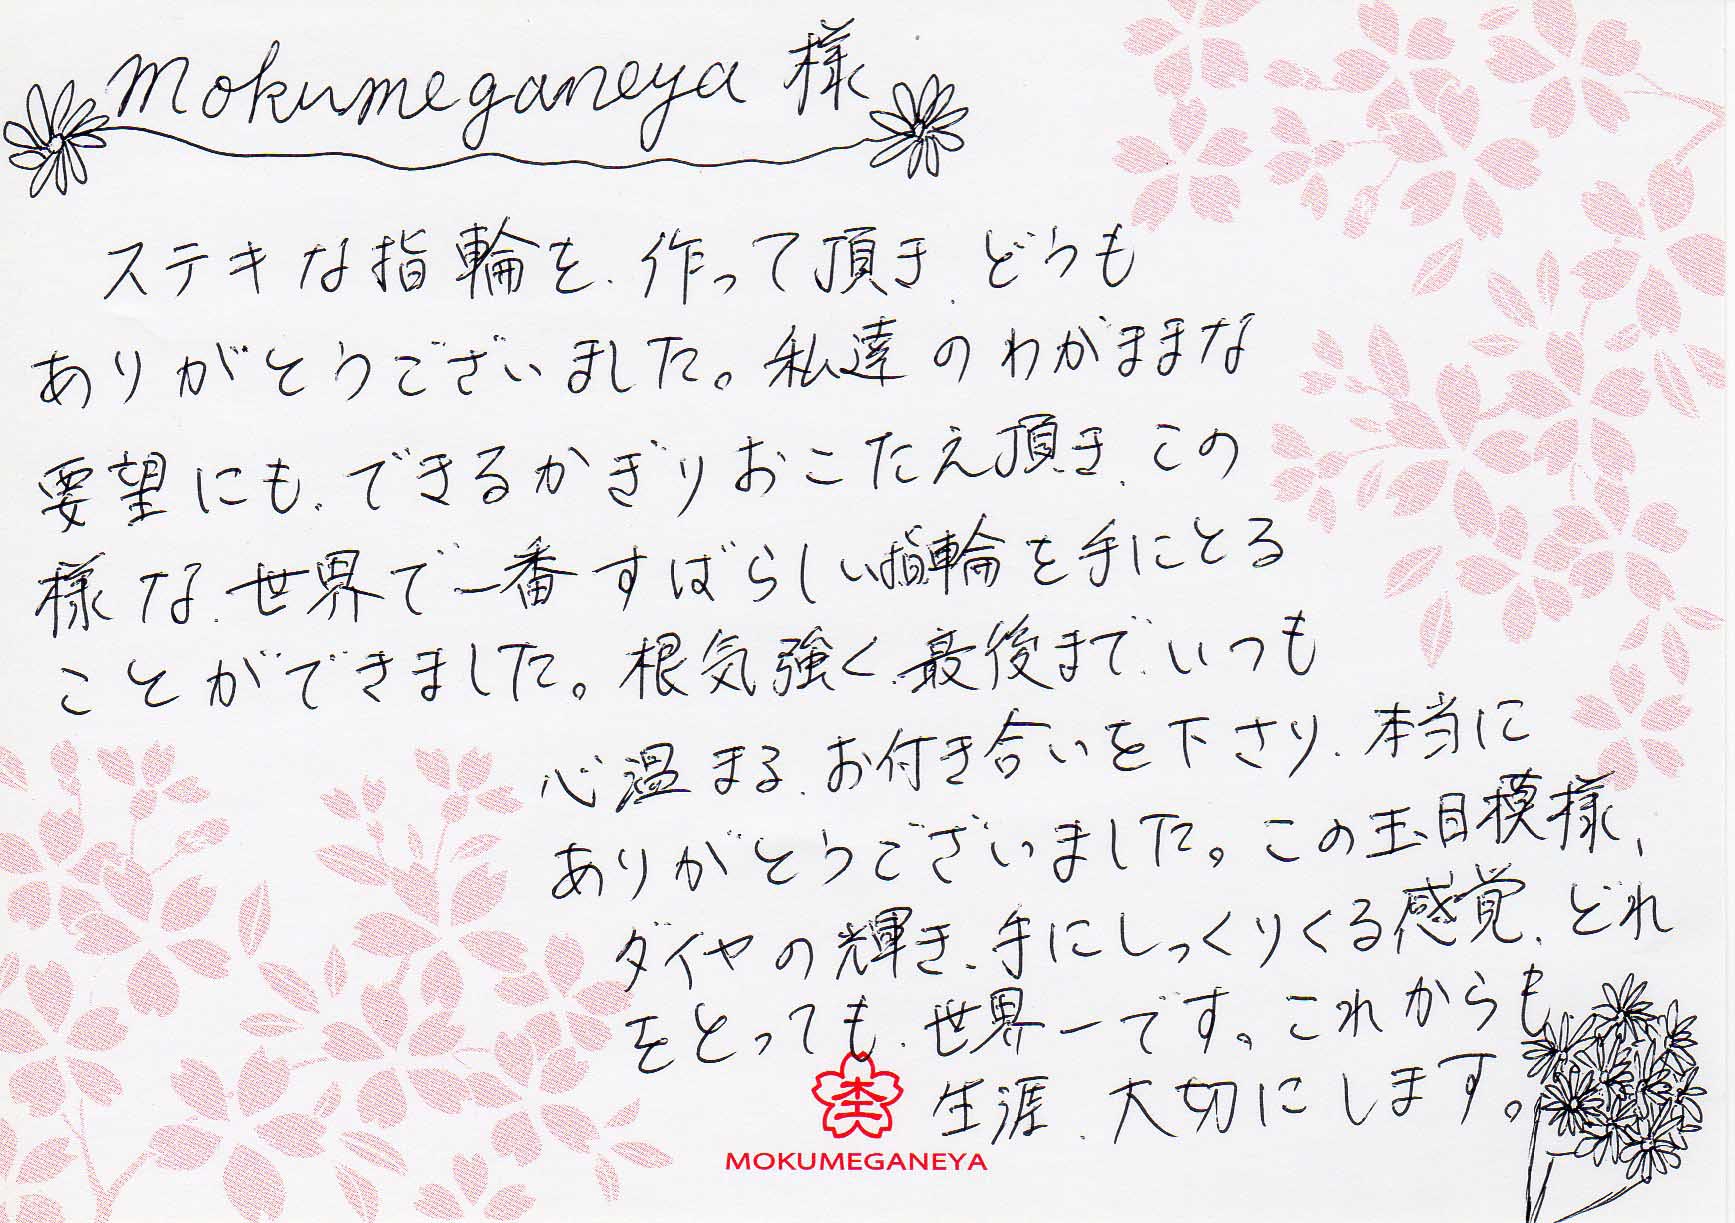 Mokumeganeya 様
ステキな指輪を、作って頂き、どうも
ありがとうございました。私達のわがままな
要望にも、できるかぎりおこたえ頂き、この
様な、世界で一番すばらしい指輪を手にとる
ことができました。根気強く、最後まで、いつも
心温まる、お付き合いを下さり、本当に
ありがとうございました。この玉目模様、
ダイヤの輝き、手にしっくりくる感覚、どれ
をとっても、世界一です。これからも
生涯、大切にします。
杢
MOKUMEGANEYA